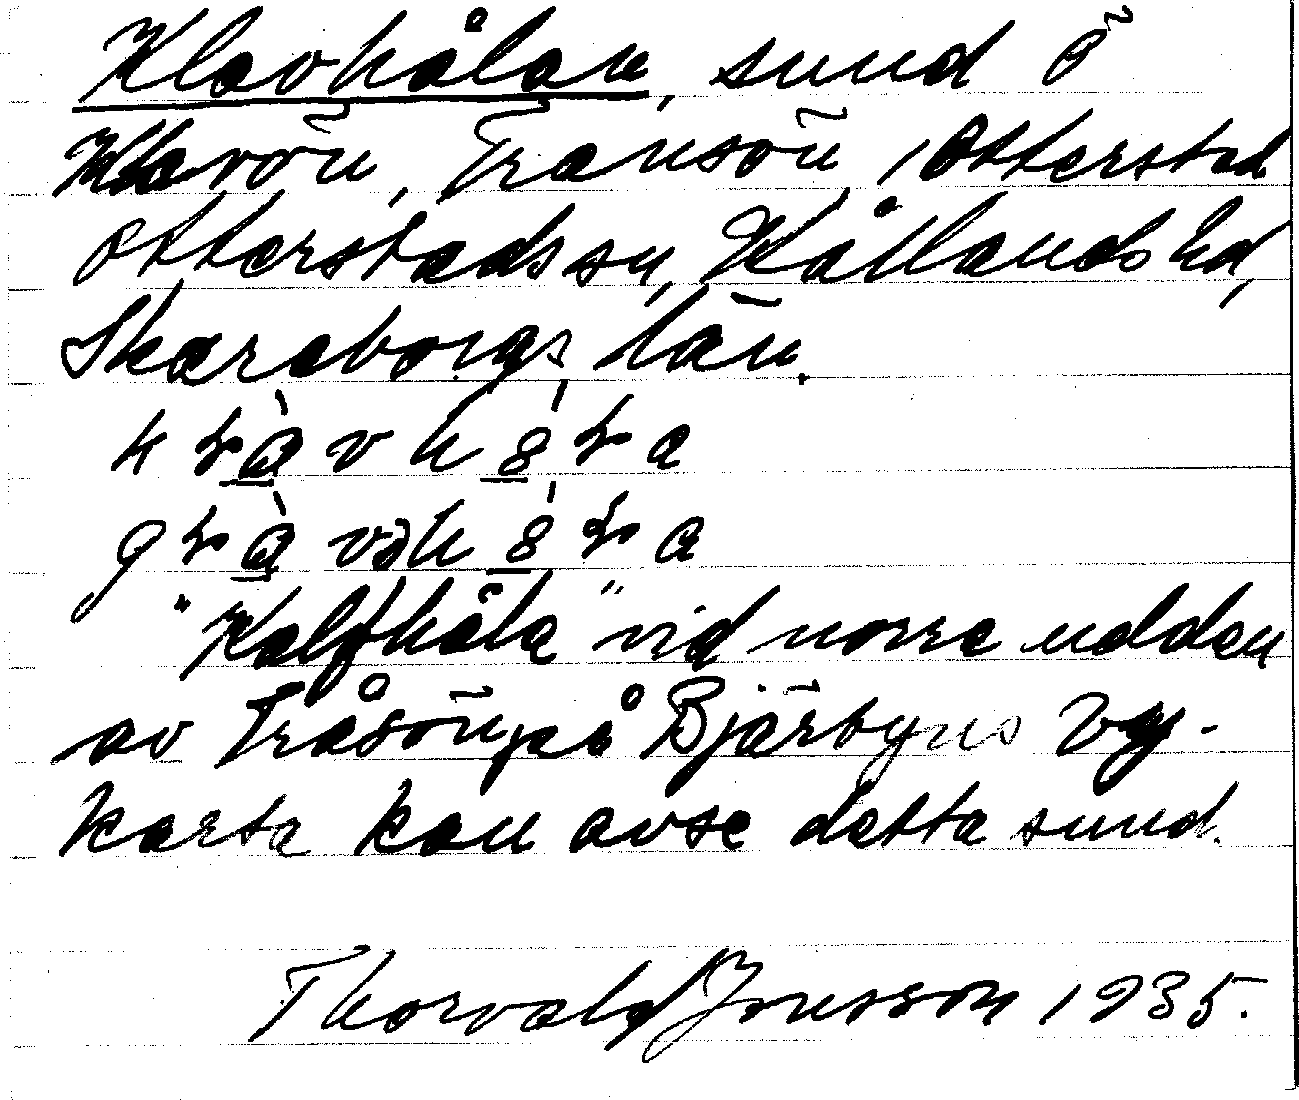 Klavhålan, sund Ö
Klavön, Transön, Otterstad
Otterstads sn, Kållands hd,
Skaraborgs län.
"Kalfhåla" vid norra udden
av Tråsön, på Bjärbyns Vg.-
karta kan avse detta sund.
Thorvald Jonsson 1935.